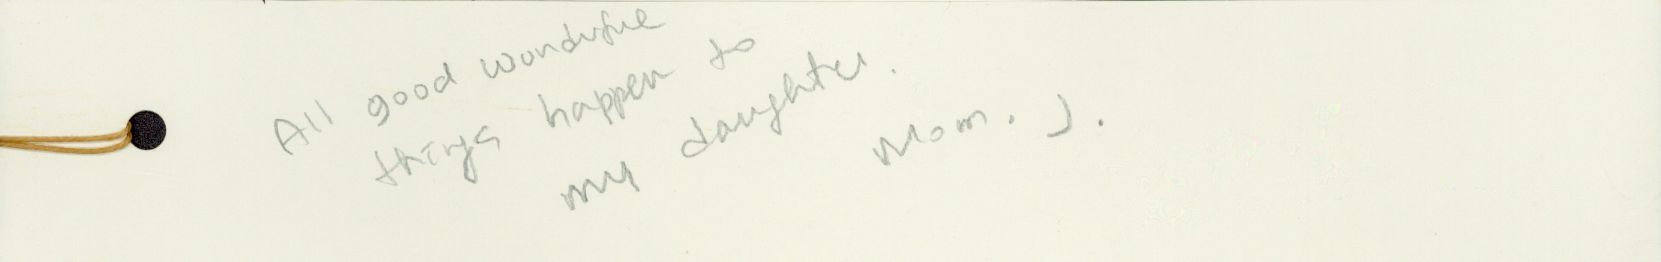 All good wonderful
things happen to
my daughter.
Mom. J.